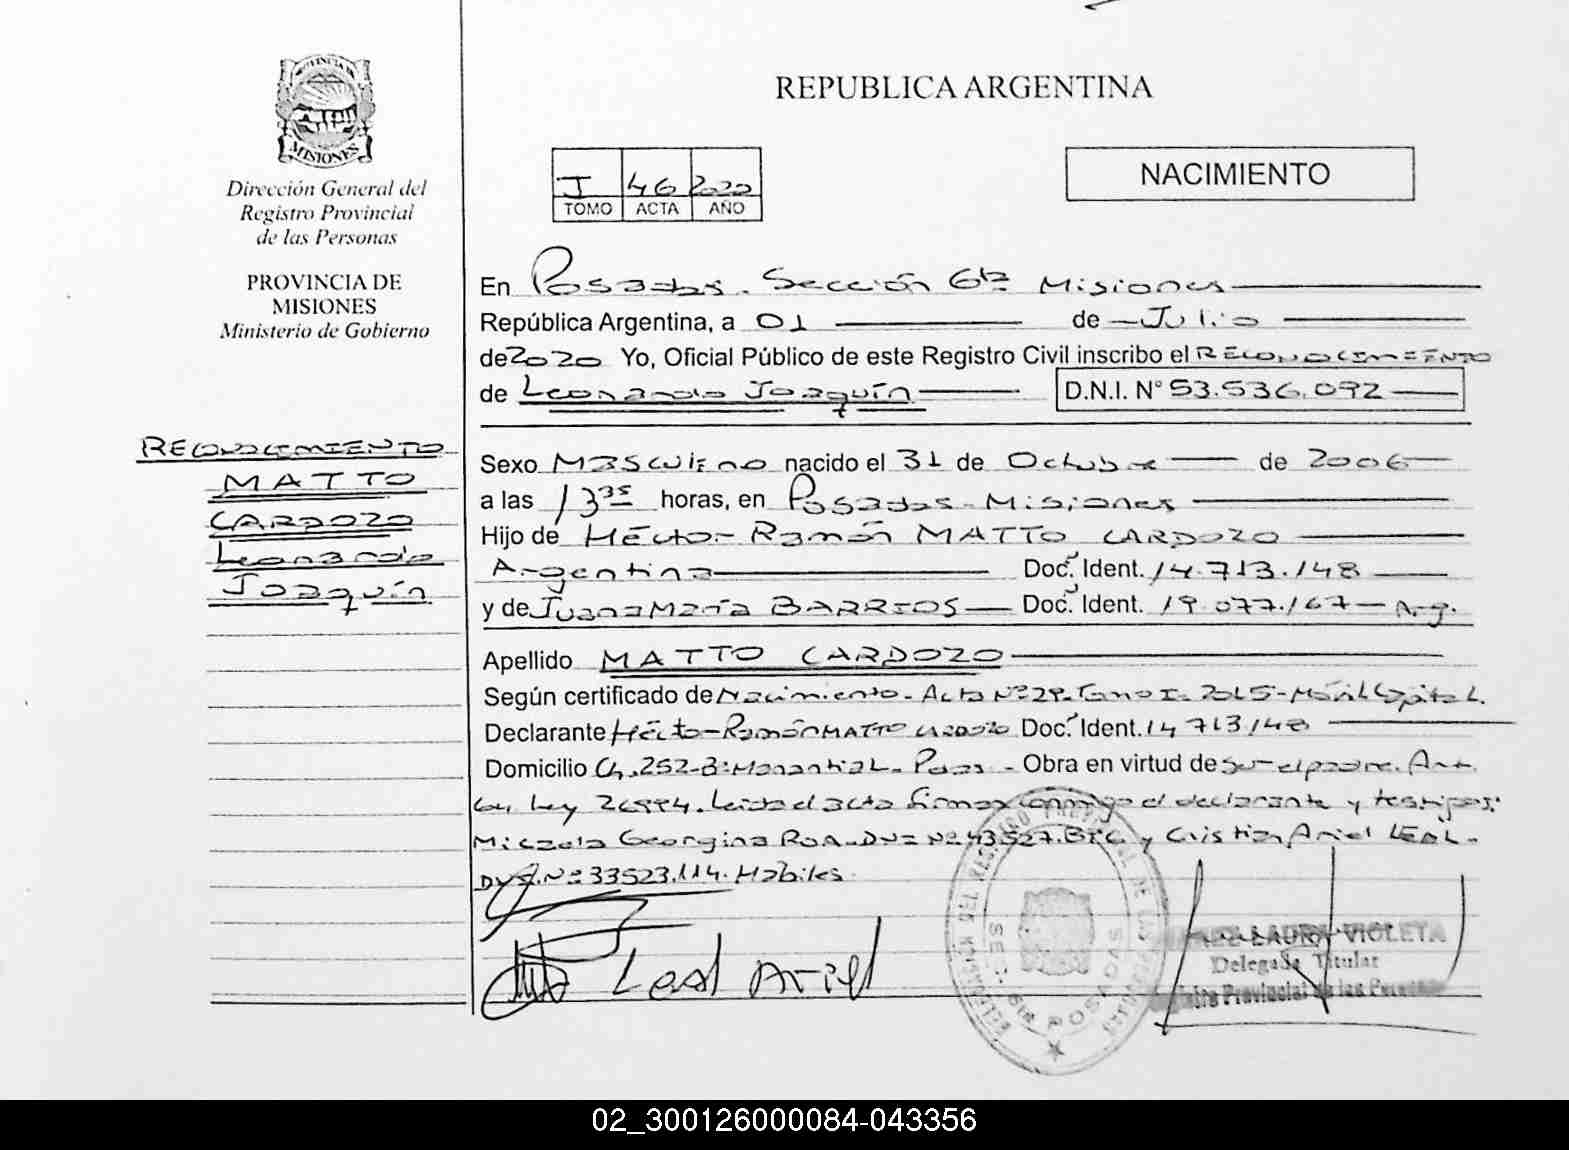 PROVINCIA DE
MISIONES
Dirección General del
Registro Provincial
de las Personas
PROVINCIA DE
MISIONES
Ministerio de Gobierno
REPUBLICA ARGENTINA
I 46 2020
TOMO ACTA AÑO
NACIMIENTO
En Posadas. Sección 6ta Misiones
República Argentina, a 01 de Julio
de 2020 Yo, Oficial Público de este Registro Civil inscribo el RECONOCIMIENTO
de Leonardo Joaquín D.N.I. Nº 53.536.092
RECONOCIMIENTO
MATTO
CARDOZO
Leonardo
Joaquín
Sexo Masculino nacido el 31 de Octubre de 2006
a las 13 35 horas, en Posadas - Misiones
Hijo de Héctor Ramón MATTO CARDOZO
Argentina Doc. Ident. 14.713.148
y de Juana María BARRIOS Doc. Ident. 19.077.167 - Arg.
Apellido MATTO CARDOZO
Según certificado de Nacimiento - Acta Nº 29. Tomo I. 2015 -
Declarante Héctor Ramón MATTO CARDOZO Doc. Ident. 14 713 148
Domicilio Ch. 252 - Bº Manantial - Obra en virtud de ser el padre. Art.
Ley 26994. Leída el acta firman conmigo el declarante y testigos:
Micaela Georgina ROA - DNI Nº 43.527. y Cristian Ariel LEAL -
DNI. Nº 33523.114. Hábiles.
Leal Ariel
LAURA VIOLETA
Delegada Titular
Registro Provincial de las Personas
SEC. 6ta POSADAS
02_300126000084-043356